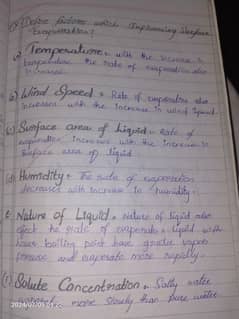 Q Define factors which Influencing Surface
Evaporation?
a) Temperature:- with the increase in
temperature the rate of evaporation also
increases.
(b) Wind Speed:- Rate of evaporation also
increases with the increase in wind speed.
(c) Surface area of Liquid:- Rate of
evaporation increases with the increase in
surface area of liquid.
(d) Humidity:- The rate of evaporation
decreases with increase in humidity.
e Nature of Liquid:- Nature of liquid also
efect the rate of evaporation liquid with
lower boiling point have greater vapour
pressure and evaporate more rapidly.
(f) Solute Concentration:- Salty water
evaporate more slowly than pure water